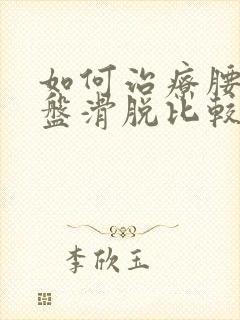 如何治療腰
盤滑脱比較
李欣玉